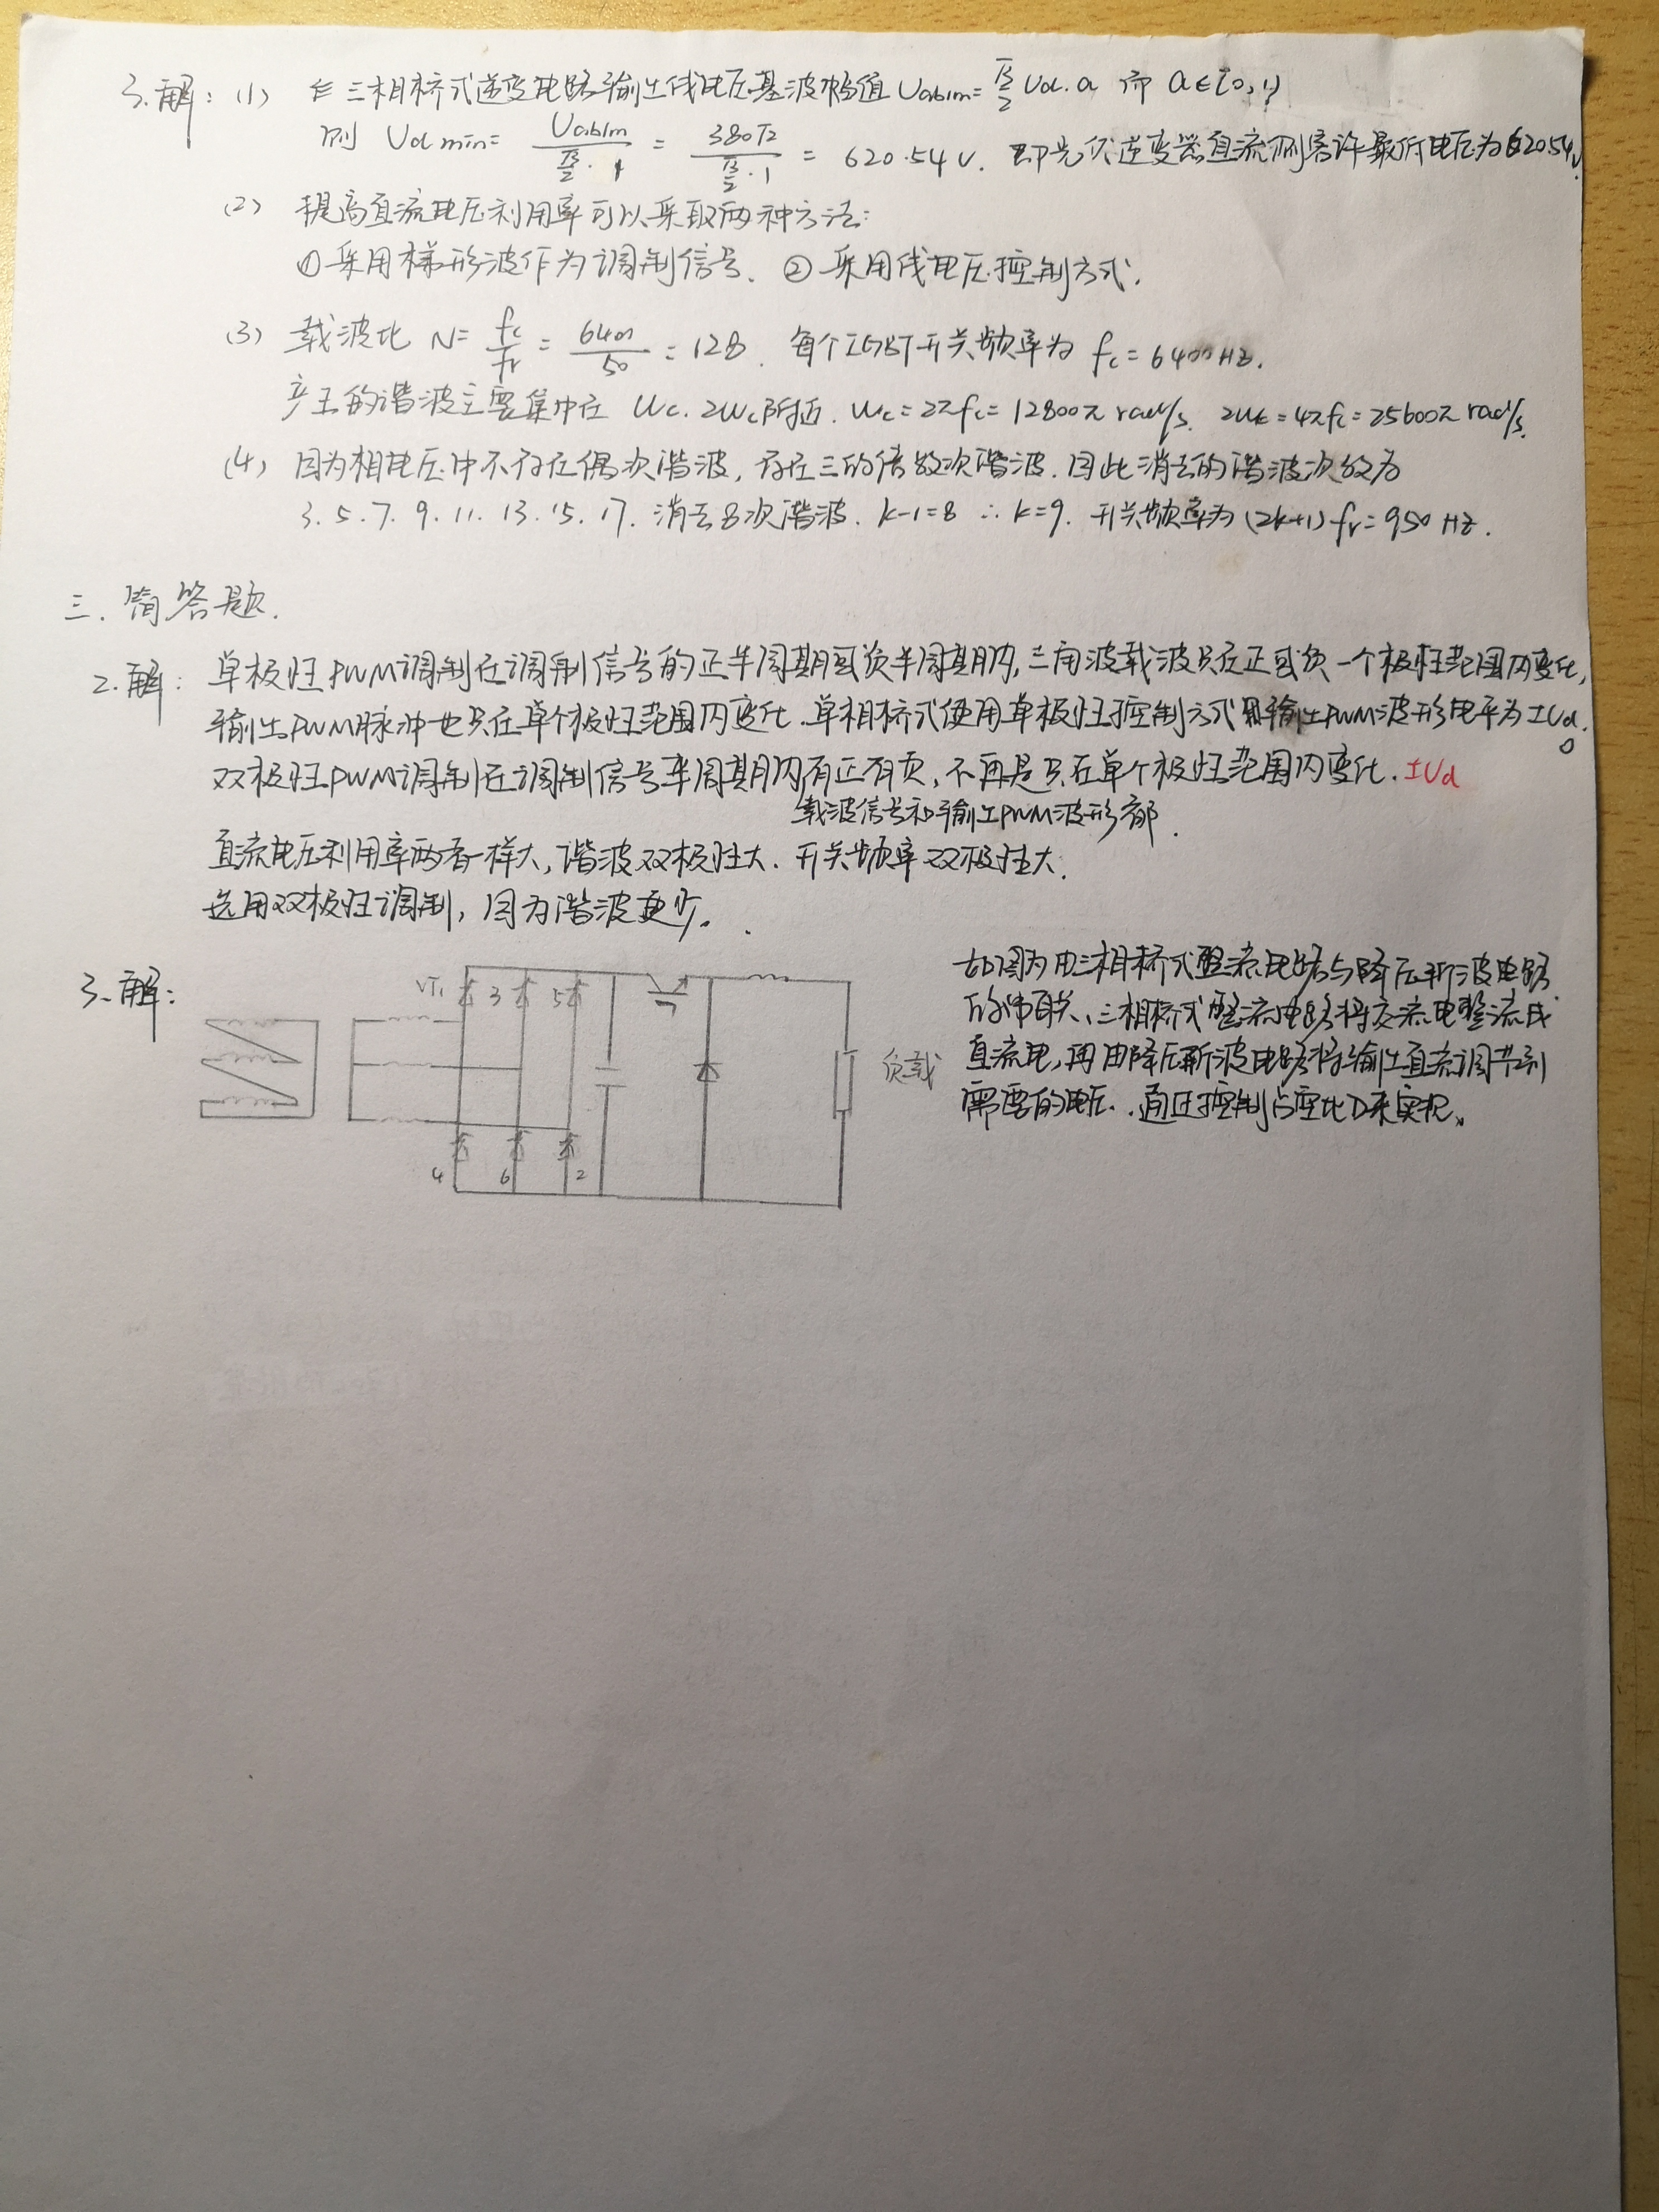 3.解：(1) 在三相桥式逆变电路输出线电压基波幅值 Uab1m=√3/2 Ud·a 而 a∈[0,1)
则 Ud min= Uab1m/(√3/2·1) = 380√2/(√3/2·1) = 620.54V. 即光伏逆变器直流侧容许最低电压为620.54V.
(2) 提高直流电压利用率可以采取两种方法：
①采用梯形波作为调制信号. ②采用线电压控制方式.
(3) 载波比 N= fc/fr = 6400/50 = 128. 每个IGBT开关频率为 fc=6400Hz.
产生的谐波主要集中在 wc. 2wc附近. wc=2πfc=12800π rad/s. 2wc=4πfc=25600π rad/s.
(4) 因为相电压中不存在偶次谐波，存在三的倍数次谐波.因此消去的谐波次数为
3.5.7.9.11.13.15.17. 消去8次谐波. k-1=8 ∴k=9. 开关频率为(2k+1)fr=950Hz.
三.简答题.
2.解：单极性PWM调制在调制信号的正半周期或负半周期内,三角波载波只在正或负一个极性范围内变化,
输出PWM脉冲也只在单个极性范围内变化.单相桥式使用单极性控制方式 输出PWM波形电平为±Ud.
0
双极性PWM调制在调制信号半周期内有正有负，不再是只在单个极性范围内变化. ±Ud
载波信号和输出PWM波形都.
直流电压利用率两者一样大，谐波双极性大. 开关频率双极性大.
选用双极性调制，因为谐波更少.
3.解：
VT1 3 5
4 6 2
负载
如图为由三相桥式整流电路与降压斩波电路
的串联、三相桥式整流电路将交流电整流成
直流电，再由降压斩波电路将输出直流调节到
需要的电压.通过控制占空比D来实现.